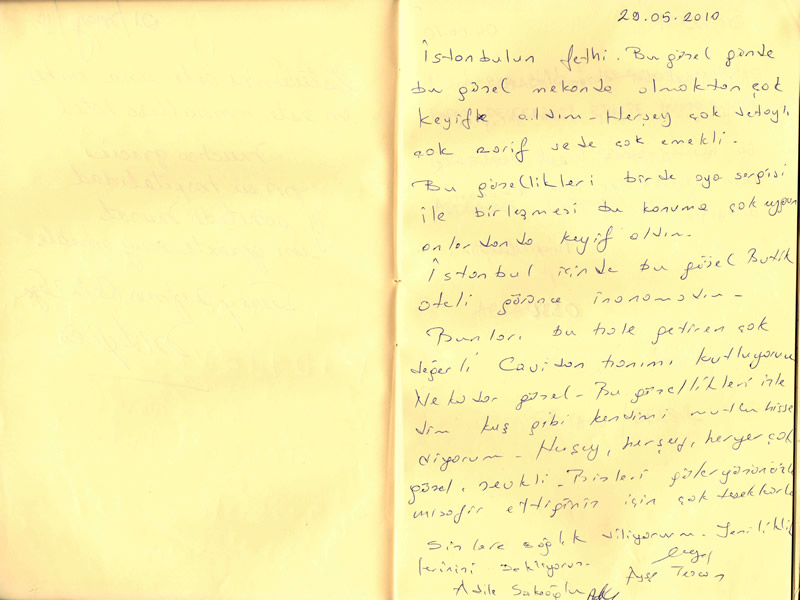 29.05.2010
İstanbulun fethi. Bu güzel günde
bu güzel mekanda olmaktan çok
keyifle aldım - Herşey çok detaylı
çok zarif ve de çok emekli.
Bu güzellikleri birde oya sergisi
ile birleşmesi bu konuma çok uygun
onlardanda keyif aldım.
İstanbul içinde bu güzel Butik
oteli görünce inanamadım -
Bunları bu hale getiren çok
değerli Cavidan hanımı kutluyorum
Ne kadar güzel - Bu güzellikleri izle
dim kuş gibi kendimi mutlu hisse
diyorum - Herşey, herşey, heryer çok
güzel, zevkli - Bizleri güleryüzünüzle
misafir ettiğiniz için çok teşekkürler
Sizlere sağlık diliyorum. Yenilikle
lerinizi bekliyorum.
Ayşe Tezcan
Adile